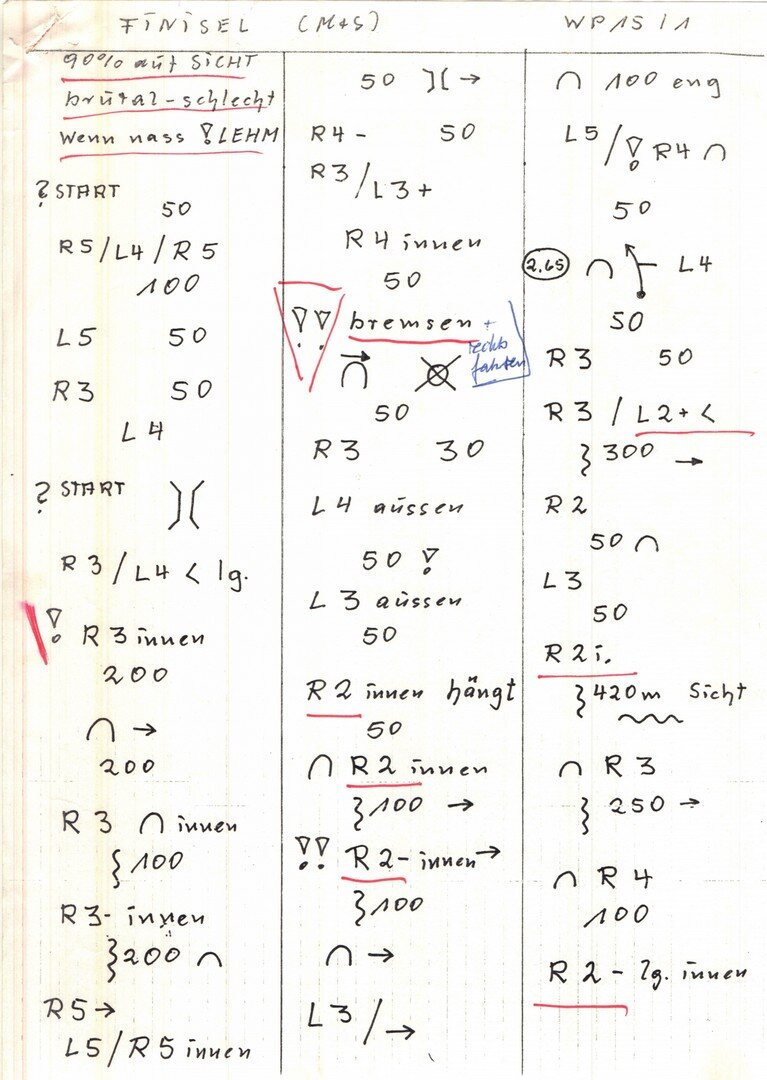 FINISEL (M+S) WP15/1
90% auf SICHT
brutal-schlecht
wenn nass ! LEHM
? START
50
R5/L4/R5
100
L5 50
R3 50
L4
? START )(
R3/L4 < lg.
! R3 innen
200
∩ →
200
R3 ∩ innen
} 100
R3- innen
} 200 ∩
R5 →
L5/R5 innen
50 )( →
R4- 50
R3/L3+
R4 innen
50
!! bremsen +
rechts
fahren
∩
50
R3 30
L4 aussen
50 !
L3 aussen
50
R2 innen hängt
50
∩ R2 innen
} 100 →
!! R2- innen →
} 100
∩ →
L3/→
∩ 100 eng
L5/! R4 ∩
50
2.65 ∩ L4
50
R3 50
R3 / L2+ <
} 300 →
R2
50 ∩
L3
50
R2 i.
} 420m Sicht
∩ R3
} 250 →
∩ R4
100
R2- lg. innen